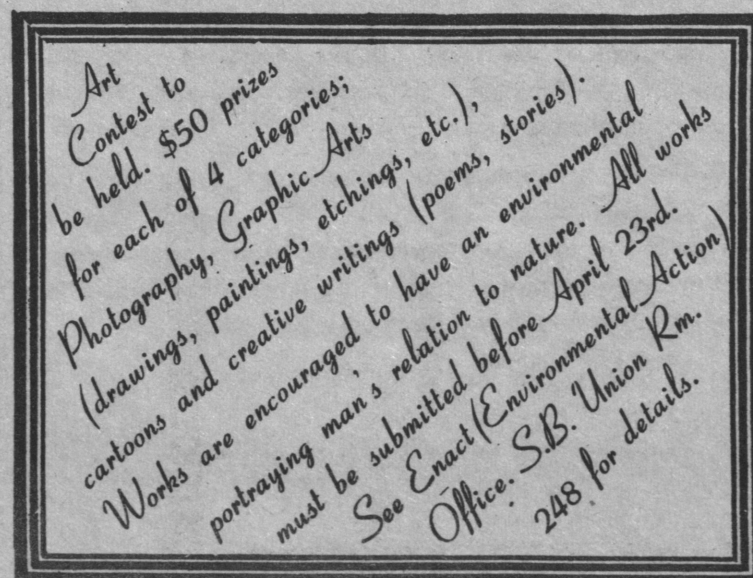 Art
Contest to
be held. $50 prizes
for each of 4 categories;
Photography, Graphic Arts
(drawings, paintings, etchings, etc.),
cartoons and creative writings (poems, stories).
Works are encouraged to have an environmental
portraying man's relation to nature. All works
must be submitted before April 23rd.
See Enact (Environmental Action)
Office. S.B. Union Rm.
248 for details.